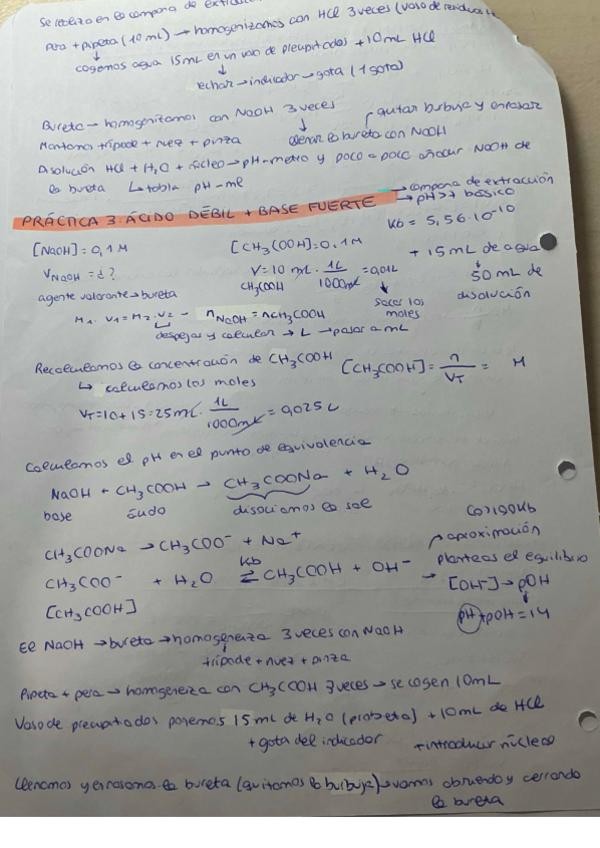 Se realiza en la campana de
Pera + pipeta (10 mL) → homogenizamos con HCl 3 veces (vaso de residuos
cogemos agua 15 mL en un vaso de precipitados + 10 mL HCl
echar → indicador → gota (1 gota)
Bureta → homogenizamos con NaOH 3 veces
quitar burbuja y enrasar
Montamos trípode + nuez + pinza
llenar la bureta con NaOH
Disolución HCl + H₂O + núcleo → pH-metro y poco a poco añadir NaOH de
la bureta ↳ tabla pH - mL
→ campana de extracción
PRÁCTICA 3: ÁCIDO DÉBIL + BASE FUERTE → pH>7 básico
Kb = 5,56·10⁻¹⁰
[NaOH] = 0,1 M [CH₃COOH] = 0,1 M + 15 mL de agua
V NaOH = ¿? V = 10 mL · 1L / 1000 mL = 0,01L 50 mL de
CH₃COOH
agente valorante → bureta sacar los disolución
moles
M₁ · V₁ = M₂ · V₂ - n NaOH = n CH₃COOH
despejas y calcular → L → pasar a mL
Recalculamos la concentración de CH₃COOH [CH₃COOH] = n / V_T = M
↳ calculamos los moles
V_T = 10 + 15 = 25 mL · 1L / 1000 mL = 0,025 L
Calculamos el pH en el punto de equivalencia
NaOH + CH₃COOH → CH₃COONa + H₂O
base ácido disociamos la sal
Co>100Kb
CH₃COONa → CH₃COO⁻ + Na⁺ aproximación
CH₃COO⁻ + H₂O ⇄ Kb CH₃COOH + OH⁻ → planteas el equilibrio
[CH₃COOH] [OH⁻] → pOH
pH + pOH = 14
El NaOH → bureta → homogeneiza 3 veces con NaOH
trípode + nuez + pinza
Pipeta + pera → homogeneiza con CH₃COOH 3 veces → se cogen 10 mL
Vaso de precipitados ponemos 15 mL de H₂O (probeta) + 10 mL de HCl
+ gota del indicador + introducir núcleo
Llenamos y enrasamos la bureta (quitamos la burbuja) → vamos abriendo y cerrando
la bureta